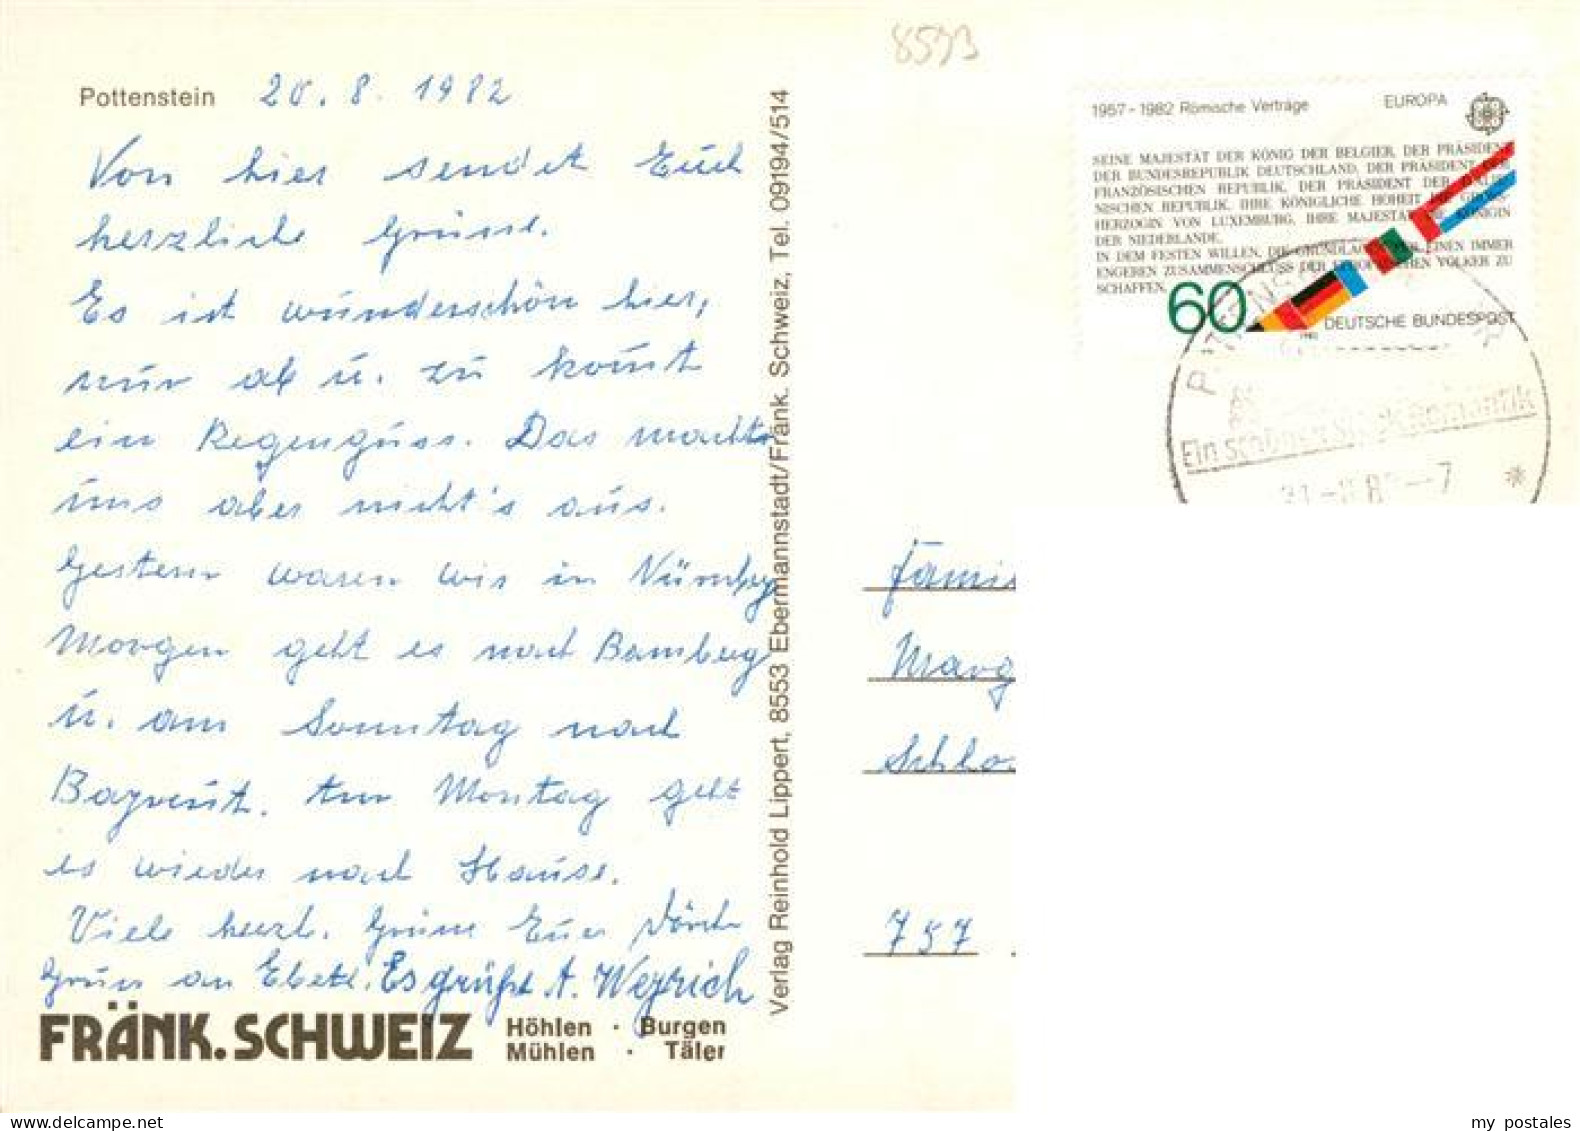 8593
Pottenstein 20.8.1982
Von hier sendet Euch
herzliche Grüsse.
Es ist wunderschön hier,
nur ab u. zu kommt
ein Regenguss. Das macht
uns aber nicht's aus.
Gestern waren wir in Nürnberg
Morgen geht es nach Bamberg
u. am Sonntag nach
Bayreut. Am Montag geht
es wieder nach Hause.
Viele herzl. Grüsse Euer
Gruss an
Es grüßt A. Weyrich
FRÄNK. SCHWEIZ
Höhlen · Burgen
Mühlen · Täler
Verlag Reinhold Lippert, 8553 Ebermannstadt/Fränk. Schweiz, Tel. 09194/514
1957-1982 Römische Verträge EUROPA
SEINE MAJESTÄT DER KÖNIG DER BELGIER, DER PRÄSIDENT
DER BUNDESREPUBLIK DEUTSCHLAND, DER PRÄSIDENT DER
FRANZÖSISCHEN REPUBLIK, DER PRÄSIDENT DER ITALIE-
NISCHEN REPUBLIK, IHRE KÖNIGLICHE HOHEIT DIE GROSS-
HERZOGIN VON LUXEMBURG, IHRE MAJESTÄT DIE KÖNIGIN
DER NIEDERLANDE,
IN DEM FESTEN WILLEN, DIE GRUNDLAGEN FÜR EINEN IMMER
ENGEREN ZUSAMMENSCHLUSS DER EUROPÄISCHEN VÖLKER ZU
SCHAFFEN,
60 DEUTSCHE BUNDESPOST
1982
POTTENSTEIN
Ein schönes Stück Romantik
Famis
Marg
Schlo
757
my postales